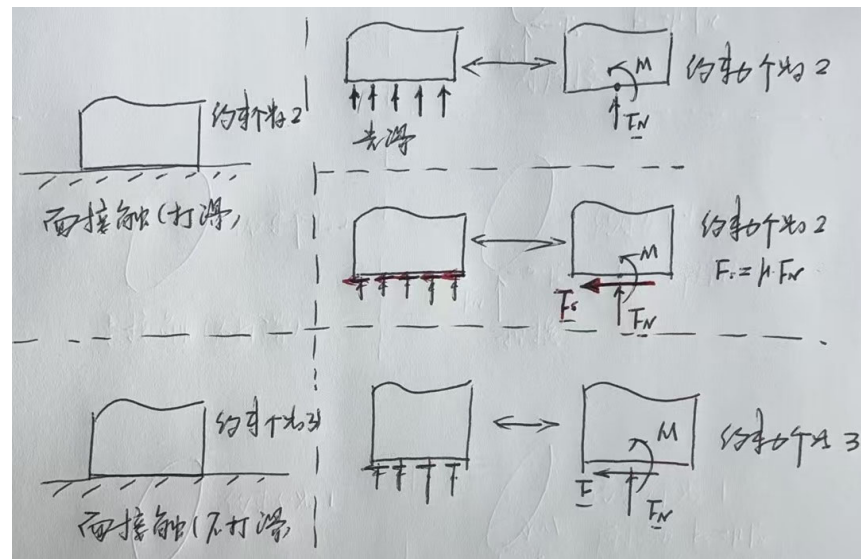 约束个数2
面接触(打滑)
光滑
M
F_N
约束力个数2
M
F_s
F_N
约束力个数2
F_s = μ·F_N
约束个数3
面接触(不打滑)
M
F
F_N
约束力个数3